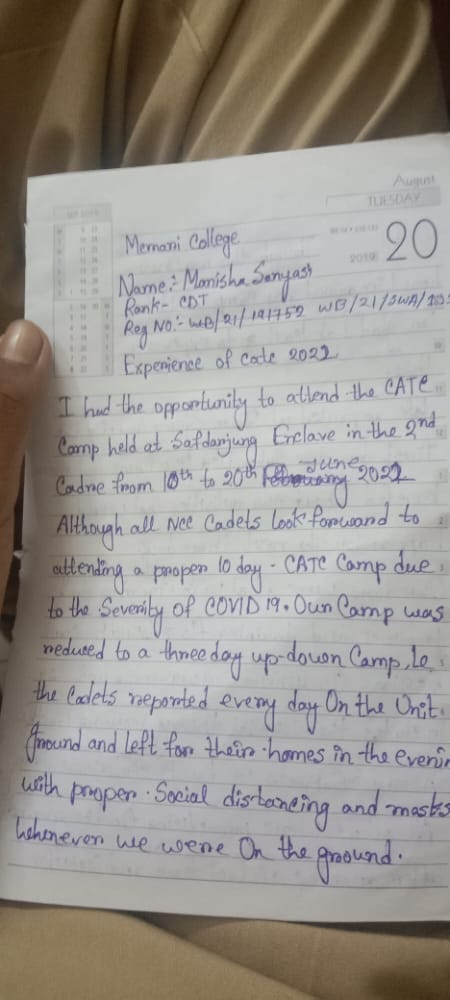 August
TUESDAY
20
2019
Memani College
Name:- Manisha Sanyash
Rank- CDT
Reg No:- WB/21/191752 WB/21/SWA/
Experience of Catc 2022
I had the opportunity to attend the CATC
Camp held at Safdanjung Enclave in the 2nd
Cadre from 10th to 20th June 2022
Although all Ncc Cadets look forward to
attending a proper 10 day - CATC Camp due
to the Severity of COVID 19. Our Camp was
reduced to a three day up-down Camp, Ie
the Cadets reported every day On the Unit
ground and left for their homes in the evenin
with proper. Social distancing and masks
whenever we were On the ground.